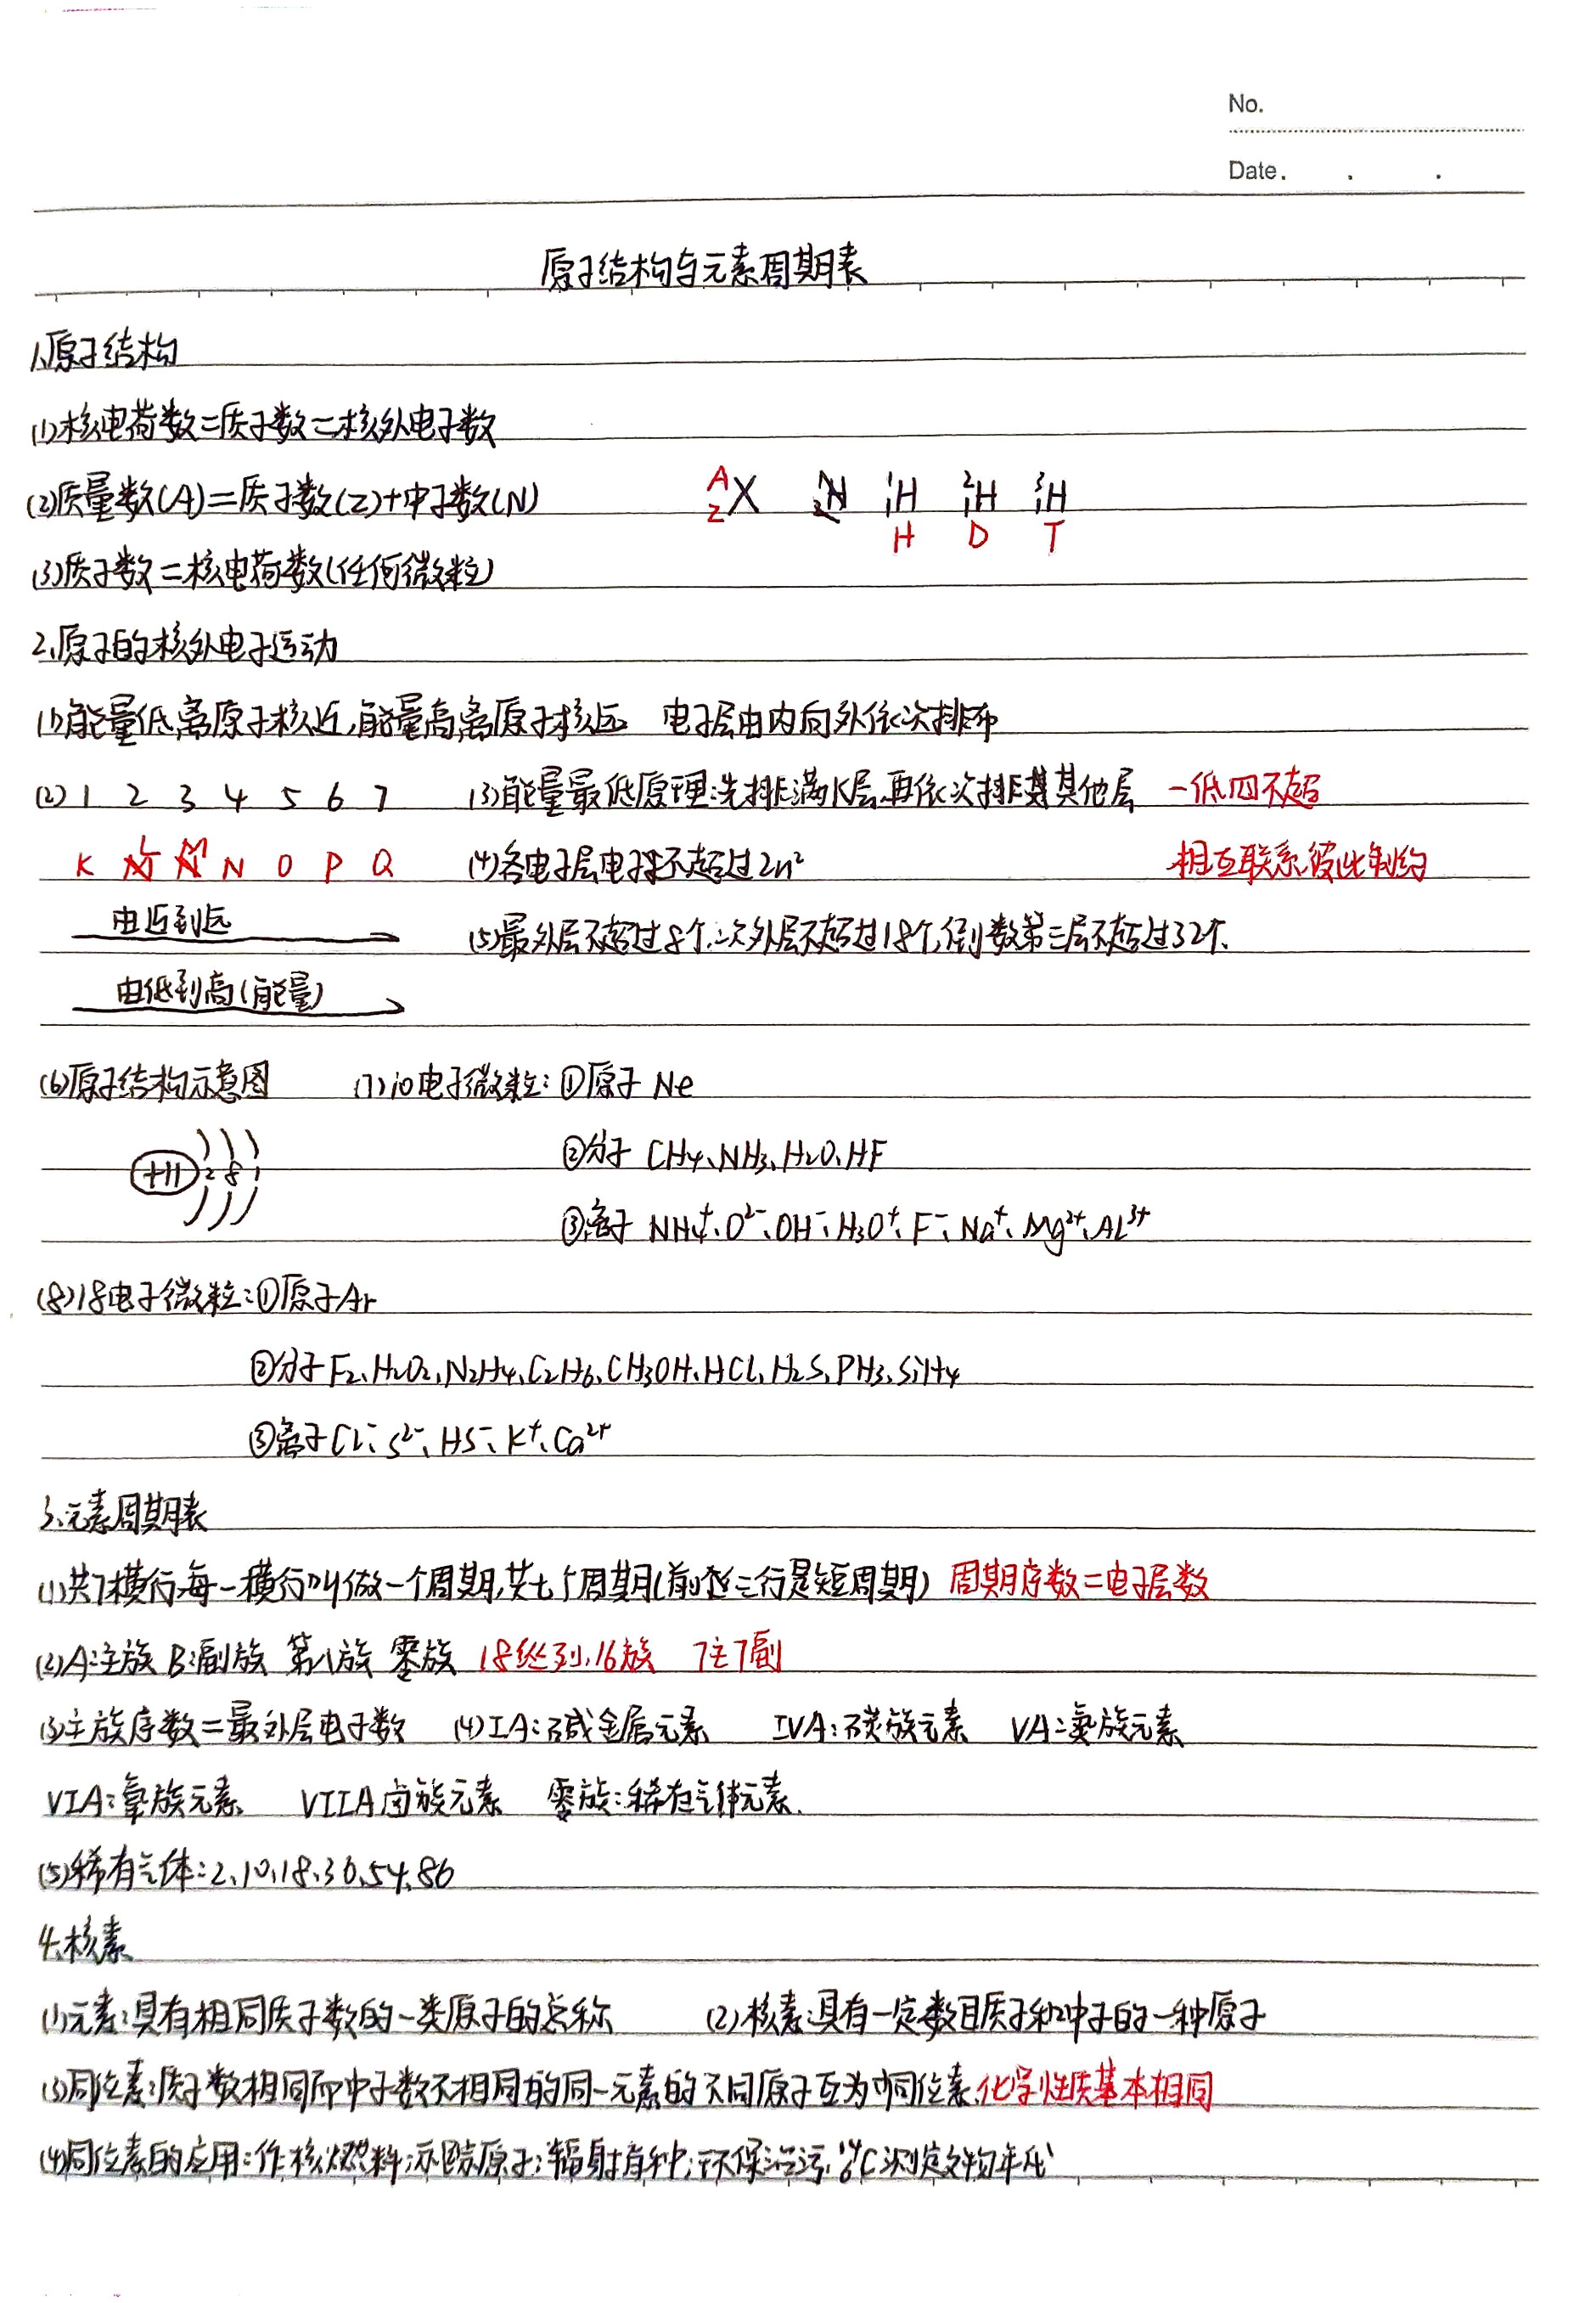 No.
Date.
原子结构与元素周期表
1.原子结构
(1)核电荷数=质子数=核外电子数
(2)质量数(A)=质子数(Z)+中子数(N) ᴬ_ZX ¹₁H ²₁H ³₁H
H D T
(3)质子数=核电荷数(任何微粒)
2.原子的核外电子运动
(1)能量低,离原子核近,能量高,离原子核远 电子层由内向外依次排布
(2) 1 2 3 4 5 6 7 (3)能量最低原理:先排满K层,再依次排其他层 一低四不超
K L M N O P Q (4)各电子层电子数不超过2n² 相互联系,彼此制约
由近到远 (5)最外层不超过8个,次外层不超过18个,倒数第三层不超过32个.
由低到高(能量)
(6)原子结构示意图 (7)10电子微粒:①原子 Ne
+11 2 8 1 ②分子 CH₄、NH₃、H₂O、HF
③离子 NH₄⁺、O²⁻、OH⁻、H₃O⁺、F⁻、Na⁺、Mg²⁺、Al³⁺
(8)18电子微粒:①原子Ar
②分子F₂、H₂O₂、N₂H₄、C₂H₆、CH₃OH、HCl、H₂S、PH₃、SiH₄
③离子Cl⁻、S²⁻、HS⁻、K⁺、Ca²⁺
3.元素周期表
(1)共7横行,每一横行叫做一个周期,共七个周期(前三行是短周期) 周期序数=电子层数
(2)A:主族 B:副族 第八族 零族 18纵列,16族 7主7副
(3)主族序数=最外层电子数 (4)IA:碱金属元素 IVA:碳族元素 VA:氮族元素
VIA:氧族元素 VIIA卤族元素 零族:稀有气体元素.
(5)稀有气体:2、10、18、36、54、86
4.核素
(1)元素:具有相同质子数的一类原子的总称 (2)核素:具有一定数目质子和中子的一种原子
(3)同位素:质子数相同而中子数不相同的同一元素的不同原子互为同位素,化学性质基本相同
(4)同位素的应用:作核燃料;示踪原子;辐射育种;环保治污,¹⁴₆C测定文物年代